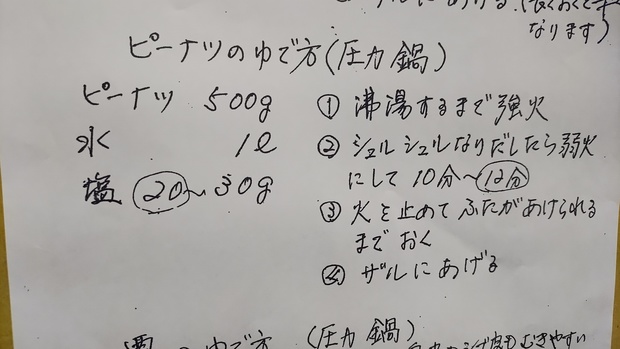 にあげる(長くおくと
なります)
ピーナツのゆで方(圧力鍋)
ピーナツ 500g
水 1ℓ
塩 20~30g
① 沸湯するまで強火
② シュルシュルなりだしたら弱火
にして10分~12分
③ 火を止めてふたがあけられる
までおく
④ ザルにあげる
のゆで方(圧力鍋)
むきやすい